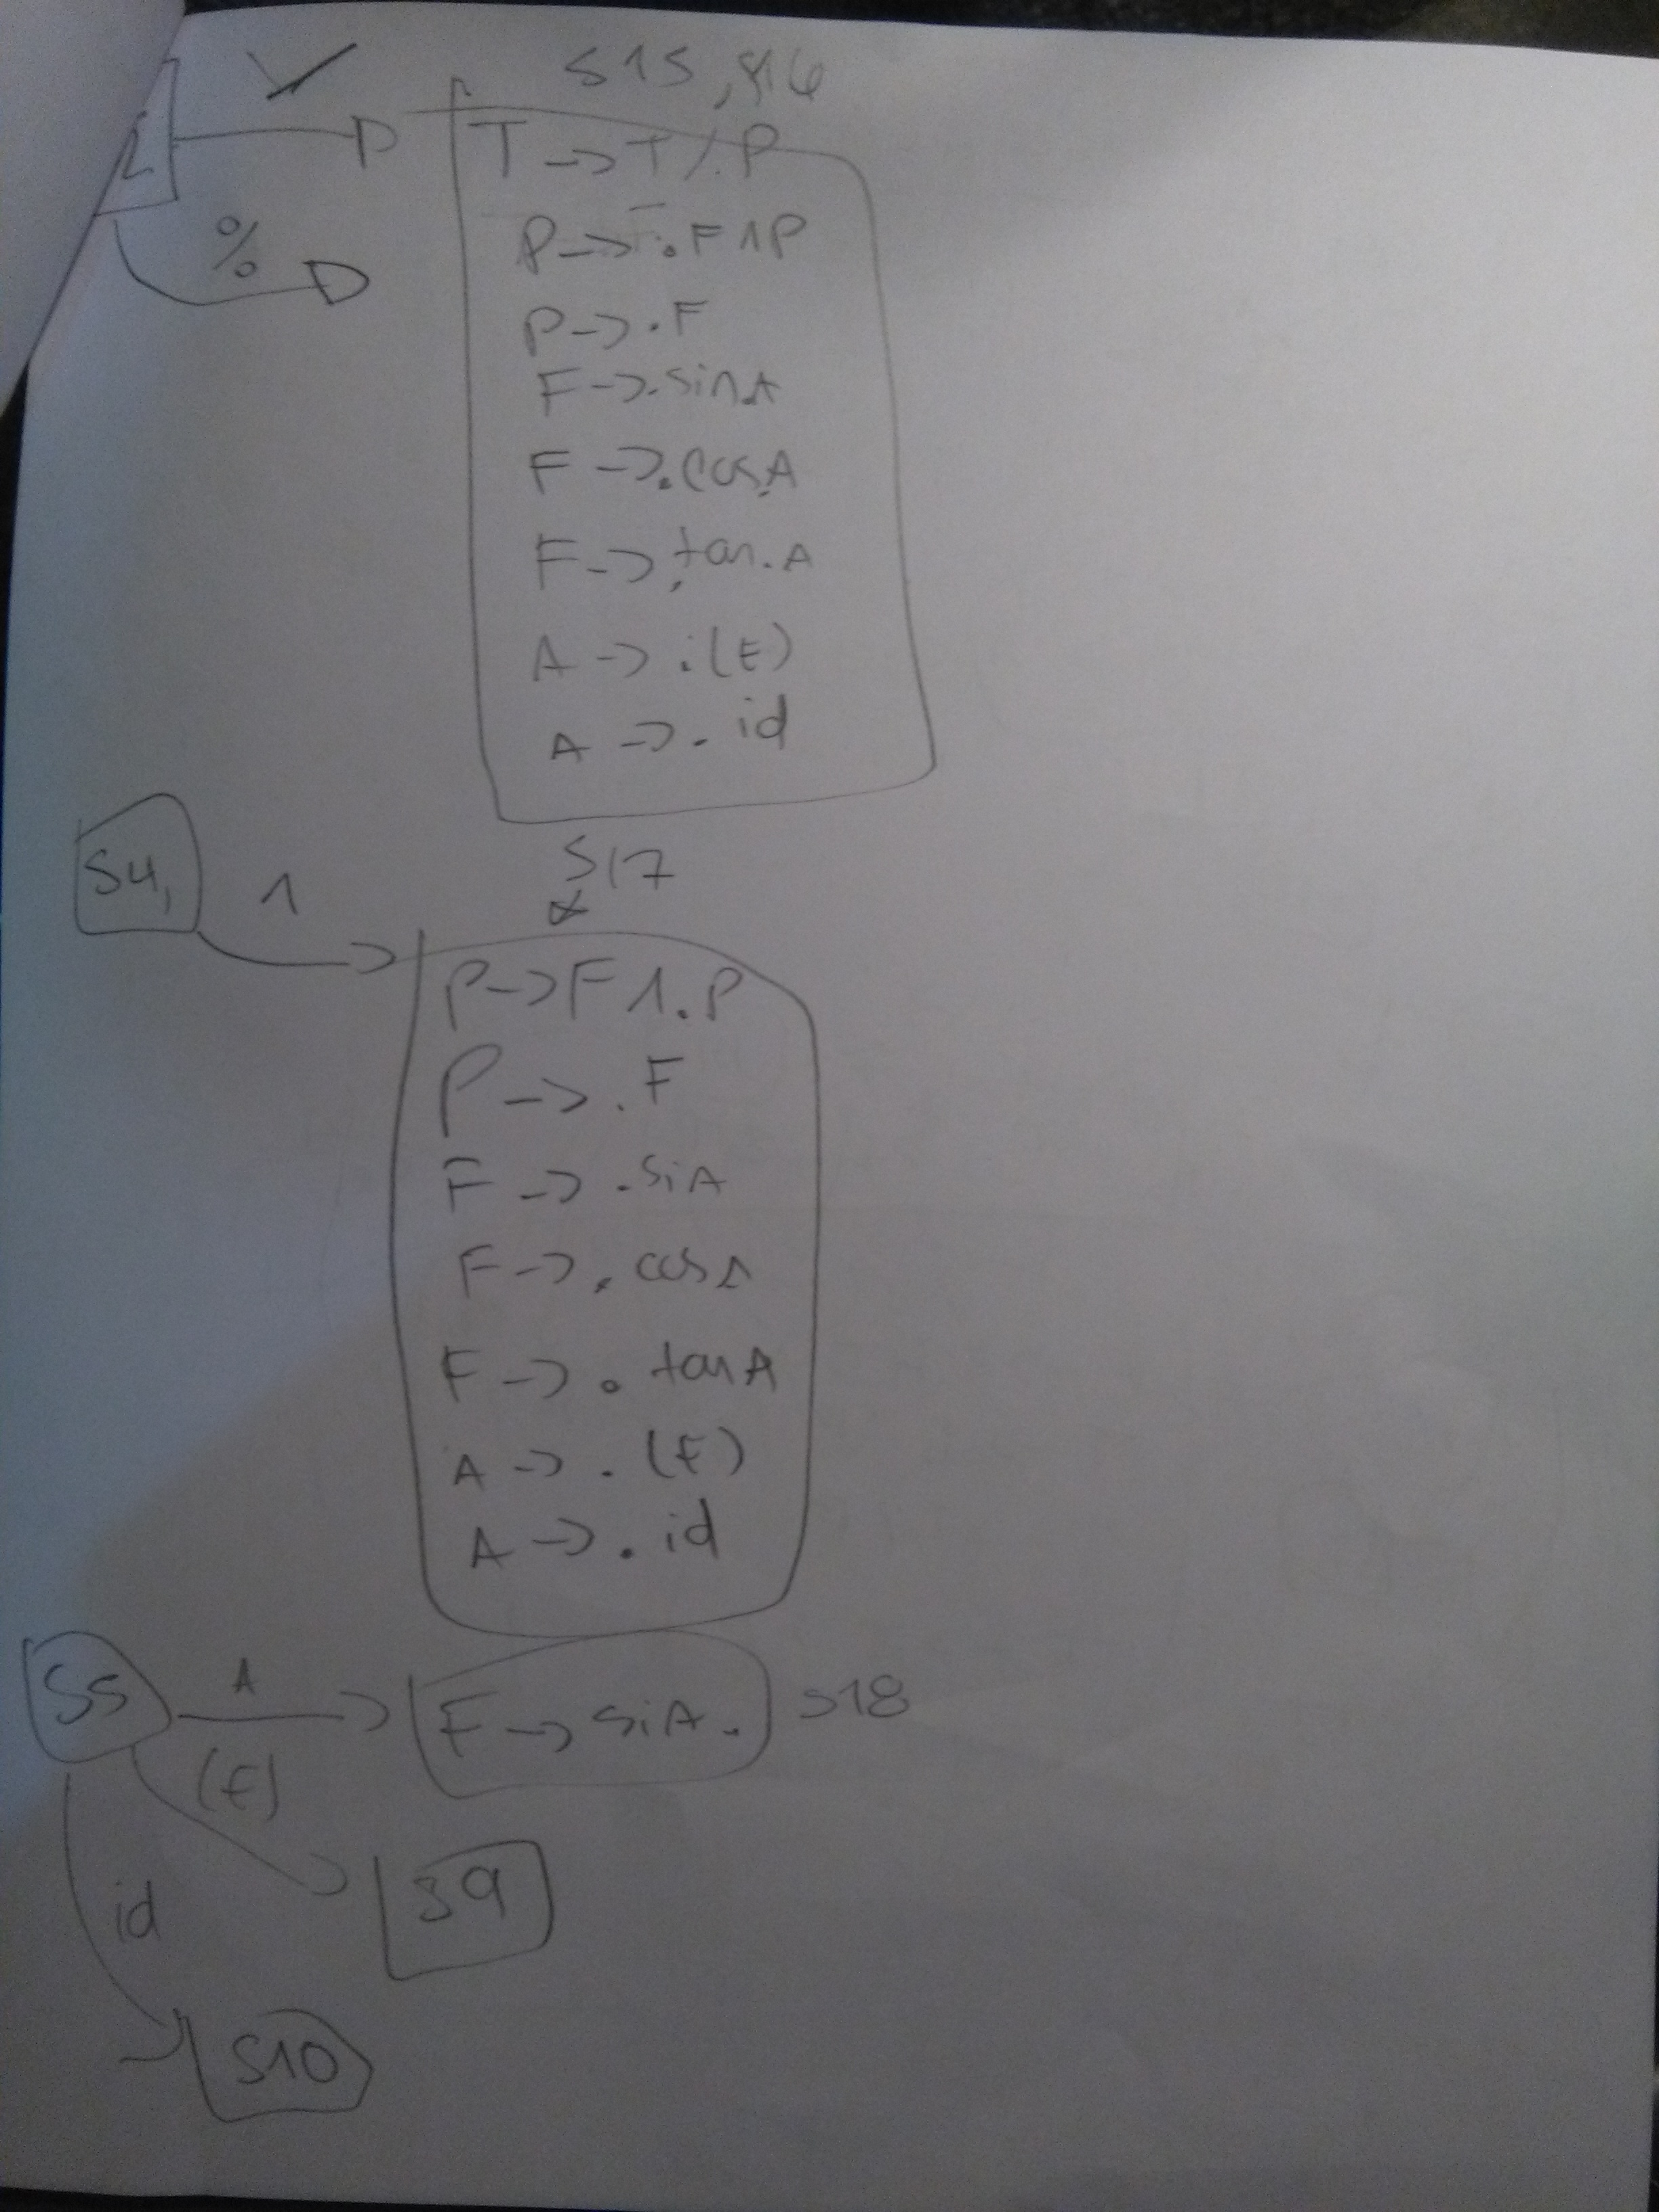 S15, S16
T -> T / . P
%
P -> . F ^ P
P -> . F
F -> . sin A
F -> . cos A
F -> . tan . A
A -> . (E)
A -> . id
S17
S4, ^
P -> F ^ . P
P -> . F
F -> . si A
F -> . cos A
F -> . tan A
A -> . (E)
A -> . id
S5 A F -> si A . S18
(E)
S9
id
S10